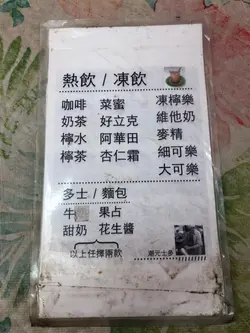 熱飲 / 凍飲
咖啡 菜蜜 凍檸樂
奶茶 好立克 維他奶
檸水 阿華田 麥精
檸茶 杏仁霜 細可樂
大可樂
多士 / 麵包
牛 果占
甜奶 花生醬
以上任擇兩款
潮光士多